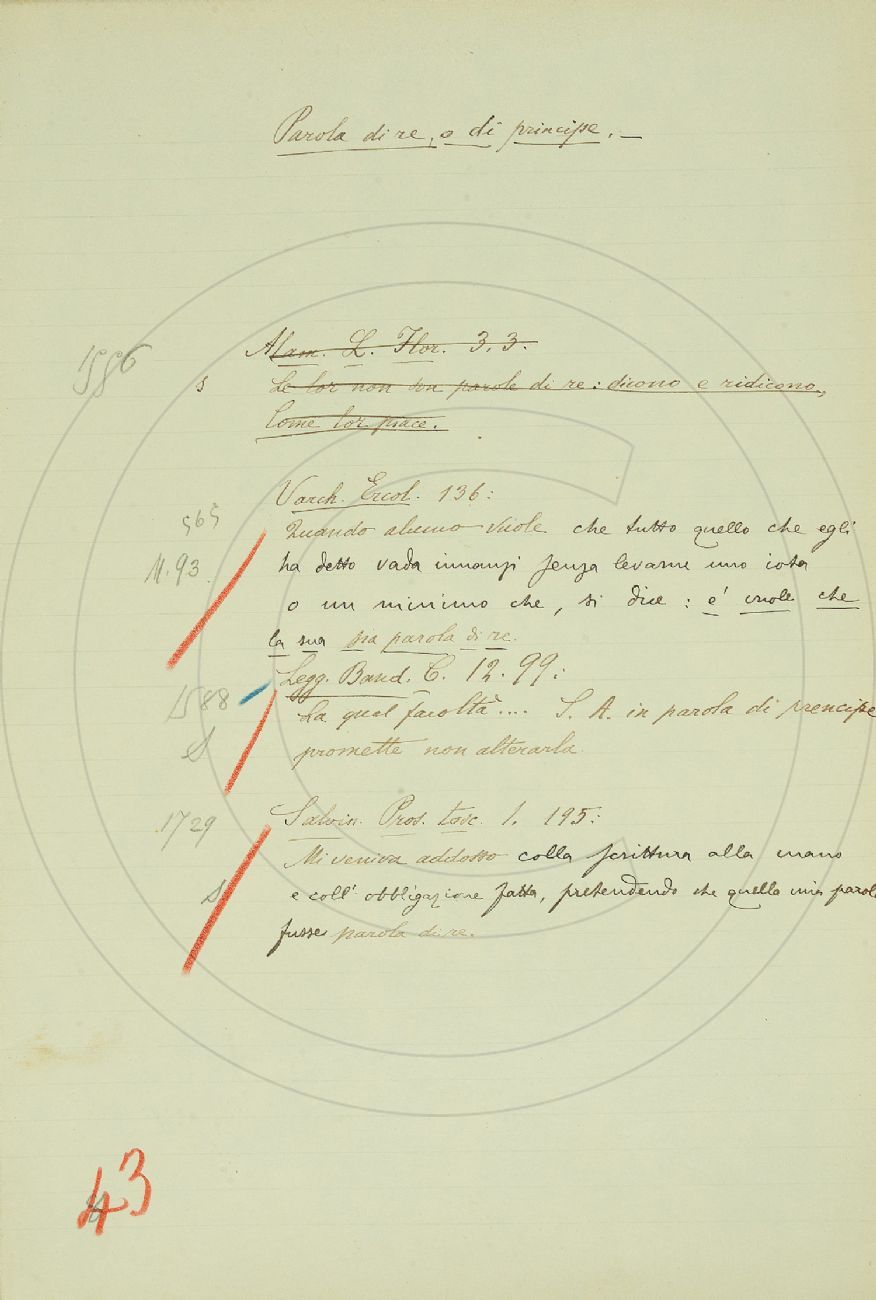 Parola di re, o di principe. —
1556
Alam. L. Flor. 3. 3.
S Le lor non son parole di re: dicono e ridicono,
Come lor piace.
Varch. Ercol. 136:
565
Quando alcuno vuole che tutto quello che egli
M. 93. ha detto vada innanzi senza levarne uno iota
o un minimo che, si dice: e' vuole che
la sua sia parola di re.
Legg. Band. C. 12. 99:
1588 La qual facoltà.... S. A. in parola di prencipe
S promette non alterarla.
1729 Salvin. Pros. tosc. 1. 195:
Mi veniva addosso colla scrittura alla mano
S e coll' obbligazione fatta, pretendendo che quella mia parola
fusse parola di re.
43